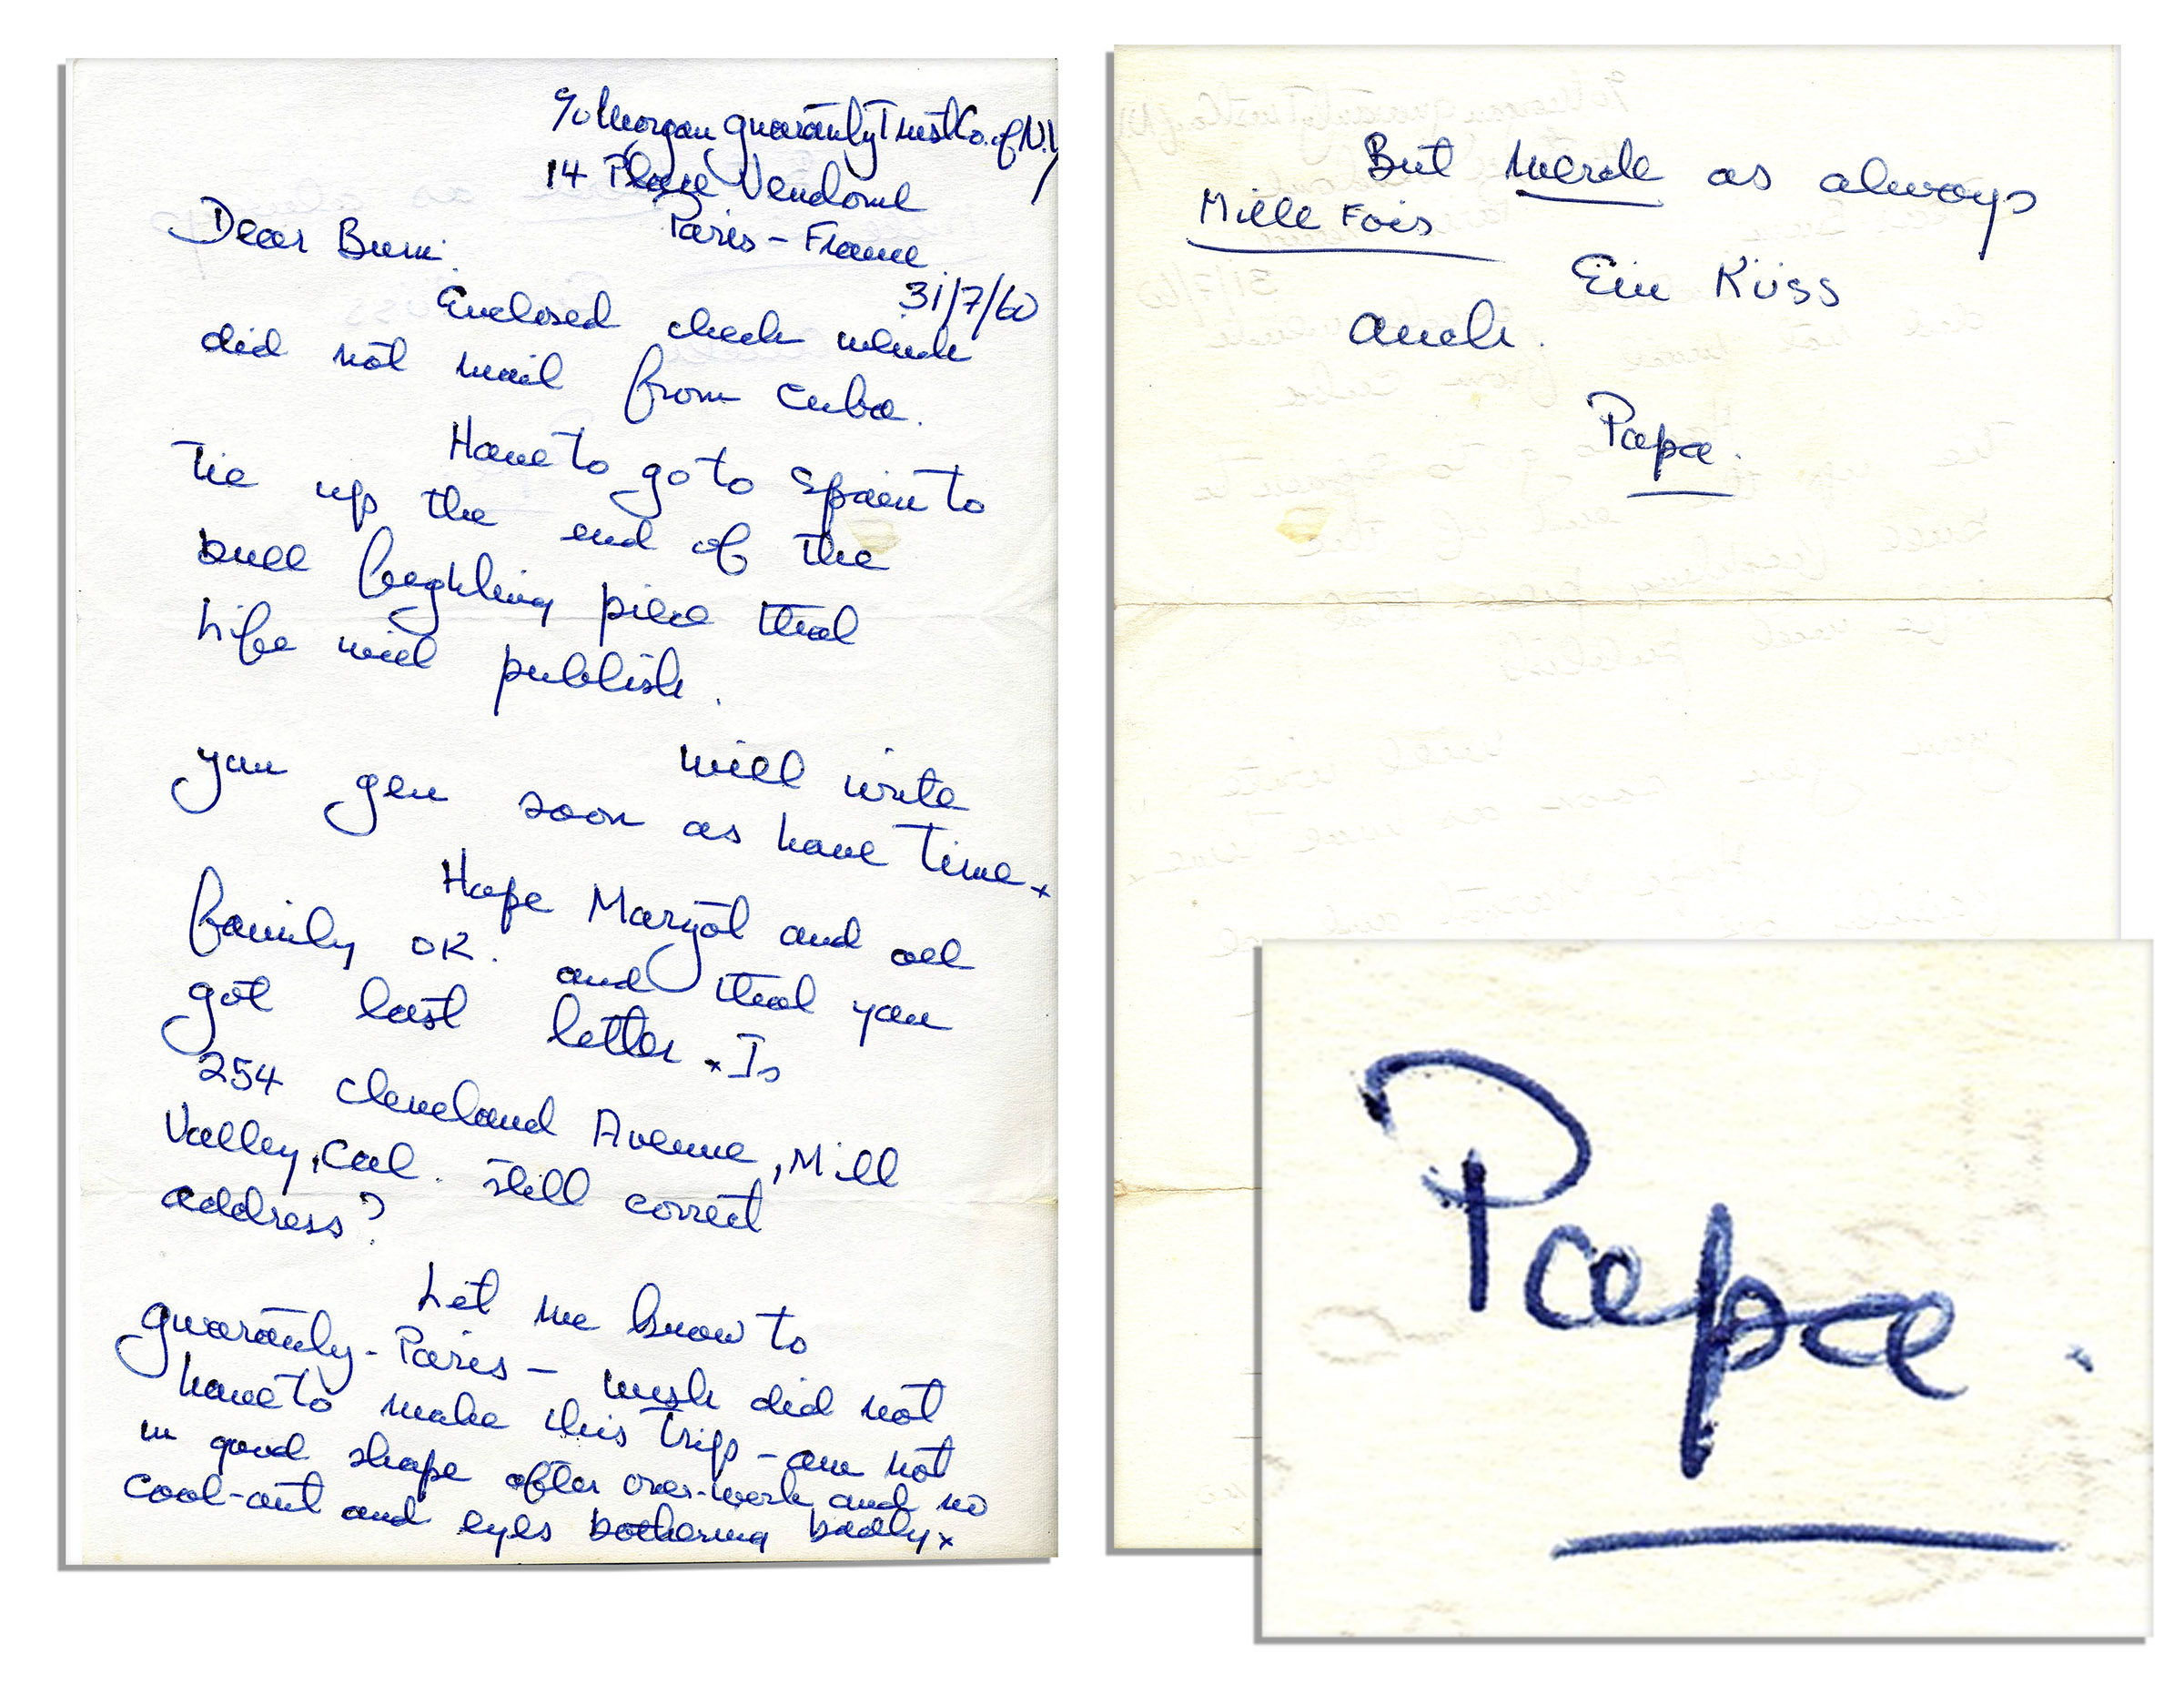 c/o Morgan Guaranty Trust Co. of N.Y.
14 Place Vendome
Paris - France
31/7/60
Dear Bum:
Enclosed check which
did not mail from Cuba.
Have to go to Spain to
tie up the end of the
bull fighting piece that
Life will publish.
Will write
you gen soon as have time x
Hope Marjot and all
family OK. and that you
got last letter x Is
254 Cleveland Avenue, Mill
Valley, Cal. still correct
address?
Let me know to
guaranty - Paris - wish did not
have to make this trip - am not
in good shape after over-work and no
cool-out and eyes bothering badly x
But merde as always
Mille Fois
Ein Küss
auch.
Papa.
Papa.